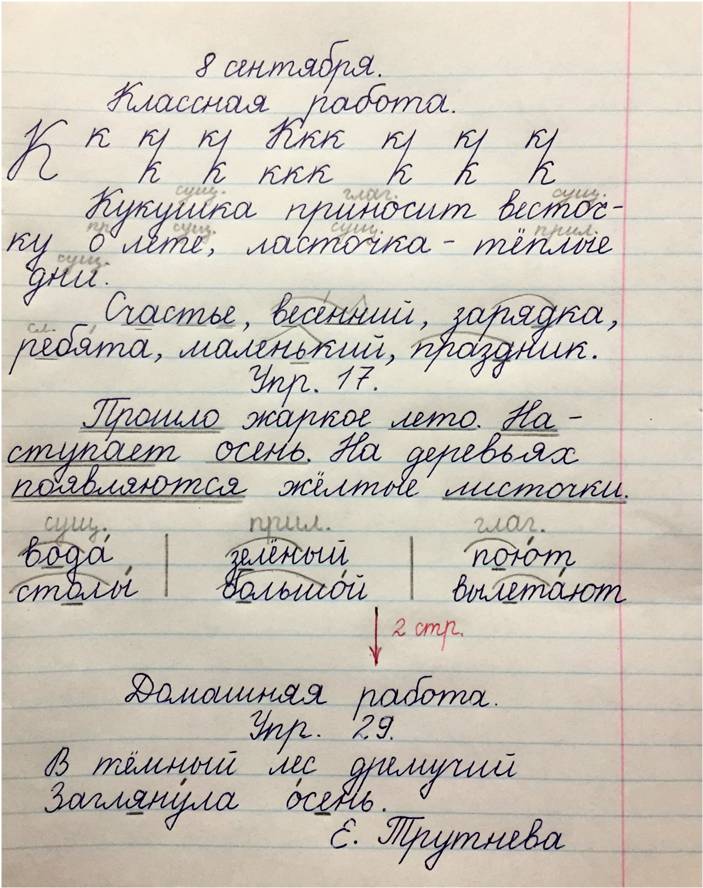 8 сентября.
Классная работа.
К к к/ к/ Ккк к/ к/ к/
к к ккк к к к
сущ. глаг. сущ.
Кукушка приносит весточ-
пр. сущ. сущ. прил.
ку о лете, ласточка - тёплые
сущ.
дни.
Счастье, весенний, зарядка,
сл.
ребята, маленький, праздник.
Упр. 17.
Прошло жаркое лето. На-
ступает осень. На деревьях
появляются жёлтые листочки.
сущ. прил. глаг.
вода́ | зелёный | пою́т
столы́ | большо́й | вылета́ют
2 стр.
Домашняя работа.
Упр. 29.
В тёмный лес дремучий
Заглянула о́сень.
Е. Трутнева